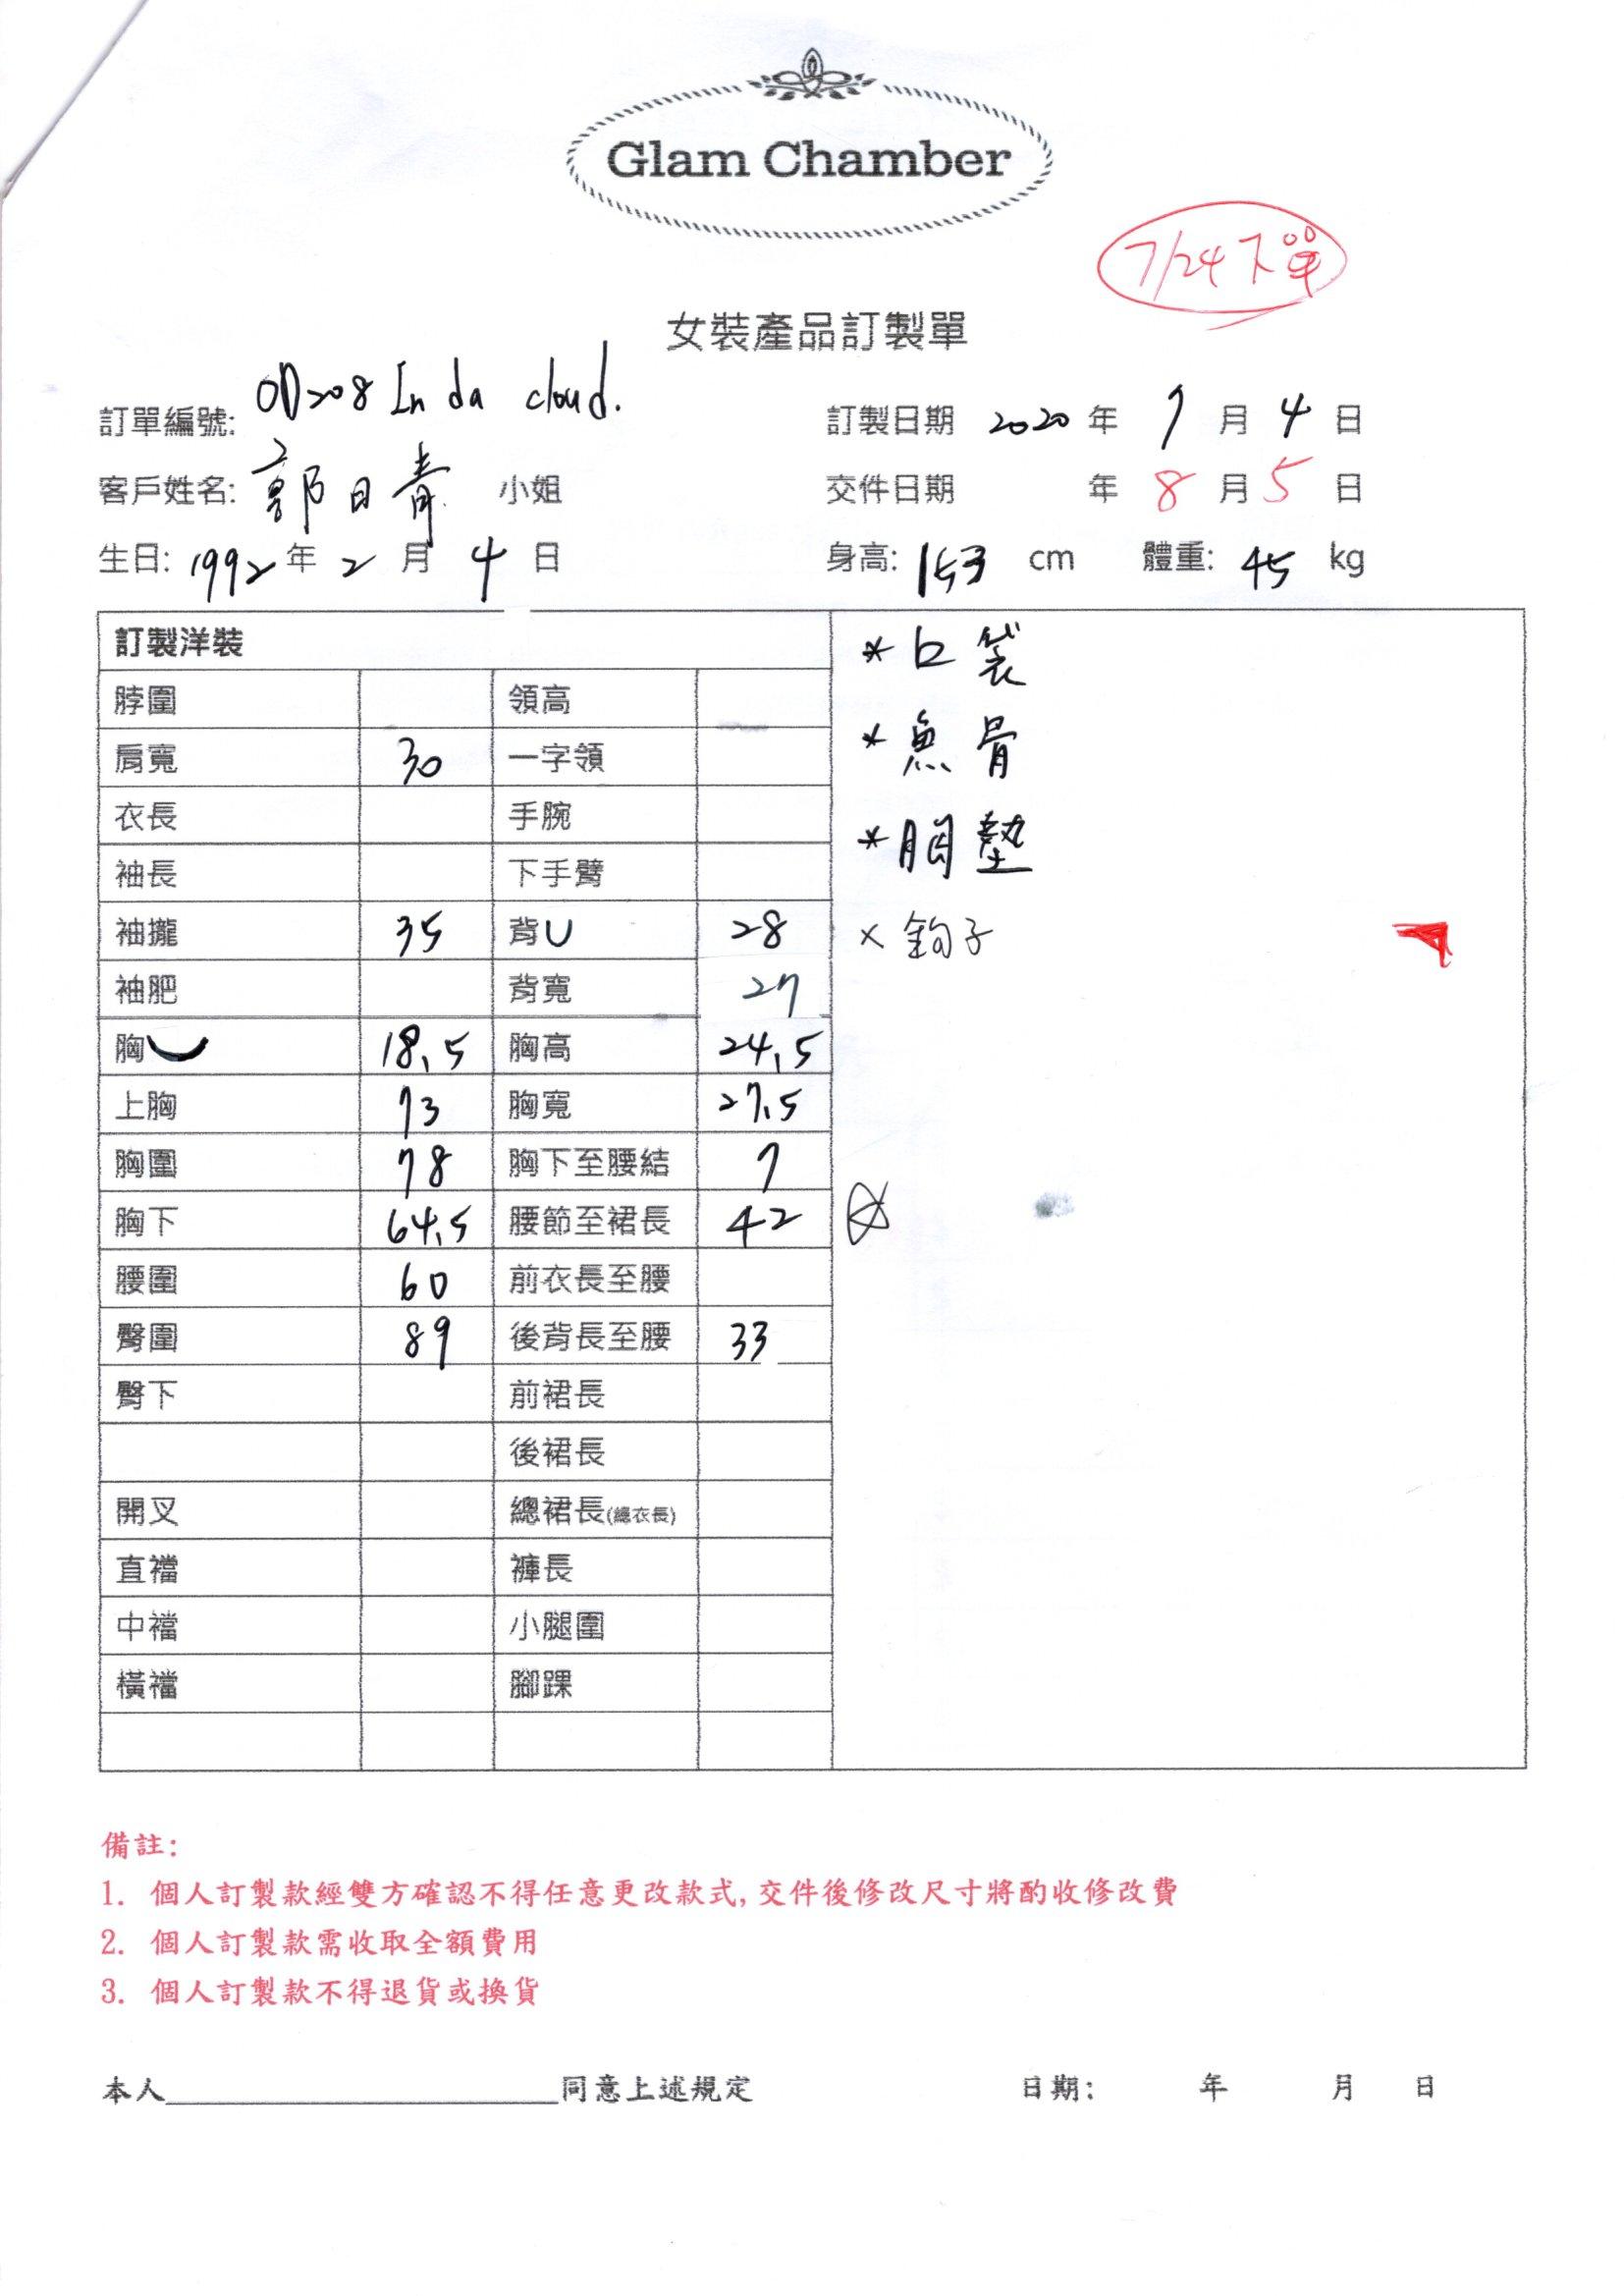 Glam Chamber
7/24 下單
女裝產品訂製單
訂單編號: OD208 In da cloud.
訂製日期 2020 年 7 月 4 日
客戶姓名: 郭日青 小姐
交件日期 年 8 月 5 日
生日: 1992 年 2 月 4 日
身高: 153 cm 體重: 45 kg
訂製洋裝
脖圍 領高
肩寬 30 一字領
衣長 手腕
袖長 下手臂
袖攏 35 背U 28
袖肥 背寬 27
胸 18.5 胸高 24.5
上胸 73 胸寬 27.5
胸圍 78 胸下至腰結 7
胸下 64.5 腰節至裙長 42
腰圍 60 前衣長至腰
臀圍 89 後背長至腰 33
臀下 前裙長
後裙長
開叉 總裙長(總衣長)
直襠 褲長
中襠 小腿圍
橫襠 腳踝
* 口袋
* 魚骨
* 胸墊
× 鉤子
備註:
1. 個人訂製款經雙方確認不得任意更改款式, 交件後修改尺寸將酌收修改費
2. 個人訂製款需收取全額費用
3. 個人訂製款不得退貨或換貨
本人 同意上述規定 日期: 年 月 日